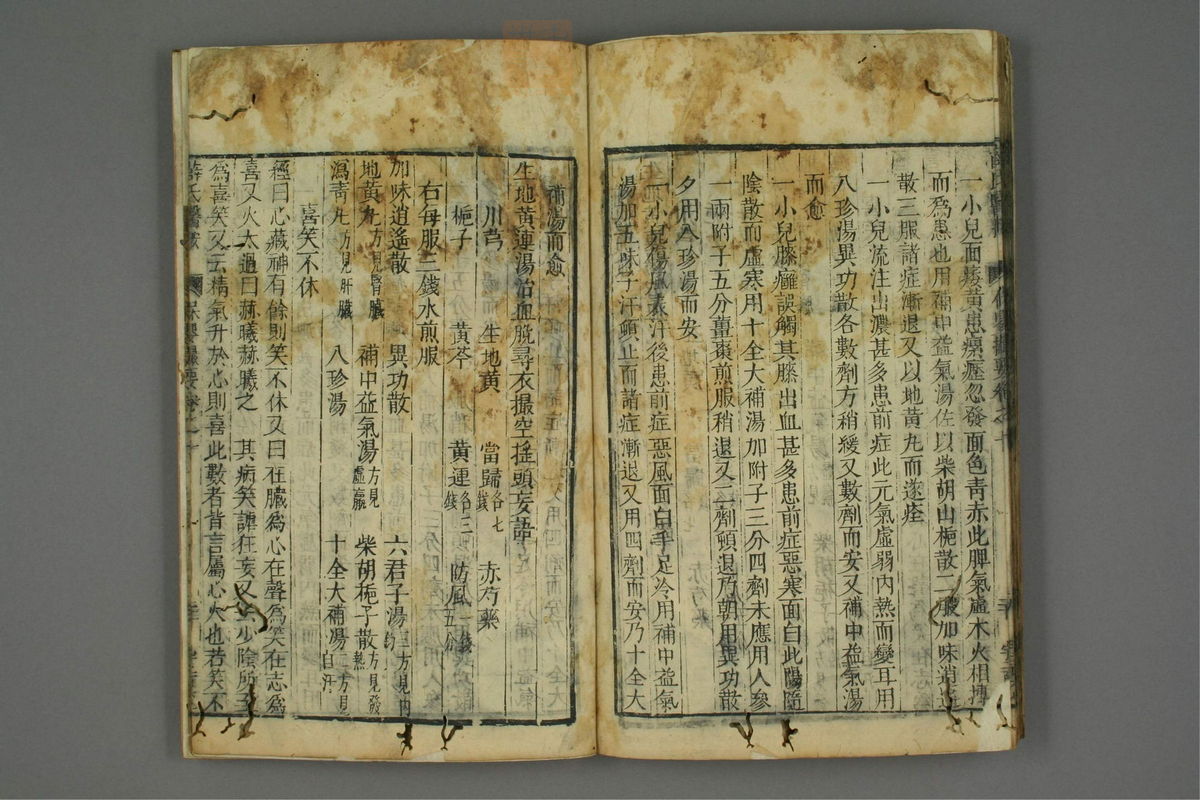 一小兒面痿黃患瘰癧忽發面色青赤此脾氣虛木火相搏
而為患也用補中益氣湯佐以柴胡山梔散二服加味逍遙
散三服諸症漸退又以地黃丸而遂痊
一小兒流注出濃甚多患前症此元氣虛弱內熱而變耳用
八珍湯異功散各數劑方稍緩又數劑而安又補中益氣湯
而愈
一小兒膝癰誤觸其膝出血甚多患前症惡寒面白此陽隨
陰散而虛寒用十全大補湯加附子三分四劑未應用人參
一兩附子五分薑棗煎服稍退又二劑頓退乃朝用異功散
夕用八珍湯而安
一小兒傷風表汗後患前症惡風面白手足冷用補中益氣
湯加五味子汗頓止而諸症漸退又用四劑而安乃十全大
補湯而愈
生地黃連湯治血脫尋衣撮空搖頭妄語
川芎 生地黃 當歸各七錢 赤芍藥
梔子 黃芩 黃連各三錢 防風一錢五分
右每服三錢水煎服
加味逍遙散 異功散 六君子湯三方見內
地黃丸方見腎臟 補中益氣湯方見虛羸 柴胡梔子散方見發熱
瀉青丸方見肝臟 八珍湯 十全大補湯二方見自汗
喜笑不休
經曰心藏神有餘則笑不休又曰在臟為心在聲為笑在志為
喜又火太過曰赫曦赫曦之 其病笑謔狂妄又云少陰所至
為喜笑又云精氣并於心則喜此數者皆言屬心火也若笑不
薛氏醫案 保嬰撮要卷之十